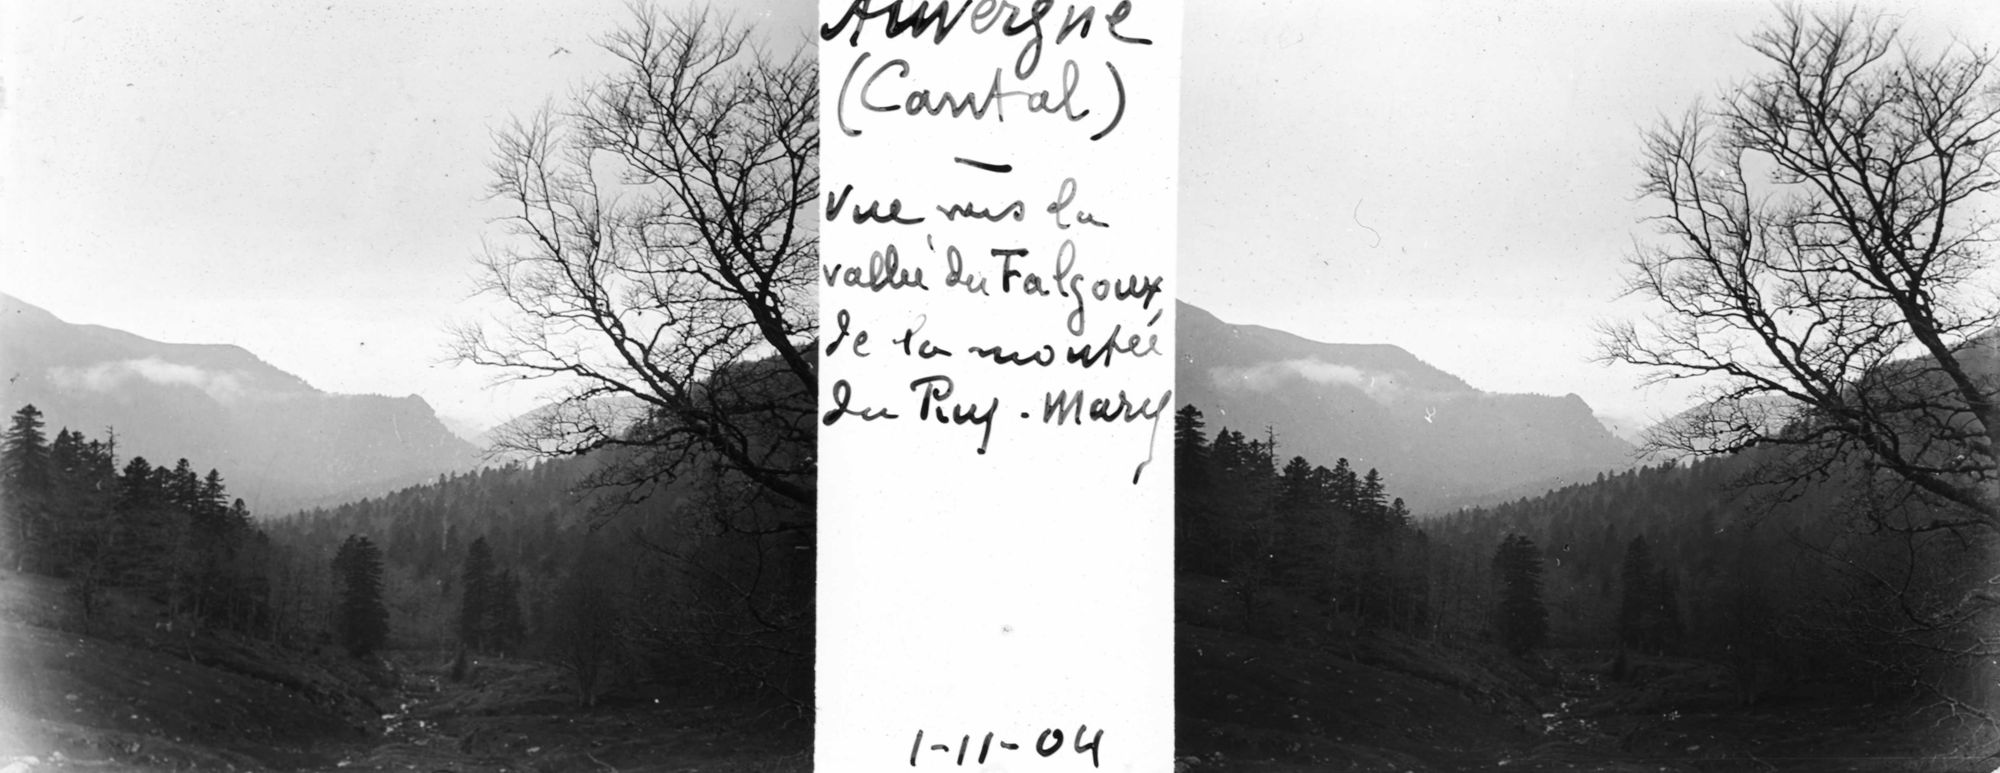 Auvergne
(Cantal)
—
Vue vers la
vallée du Falgoux
de la montée
du Puy-Mary
1-11-04